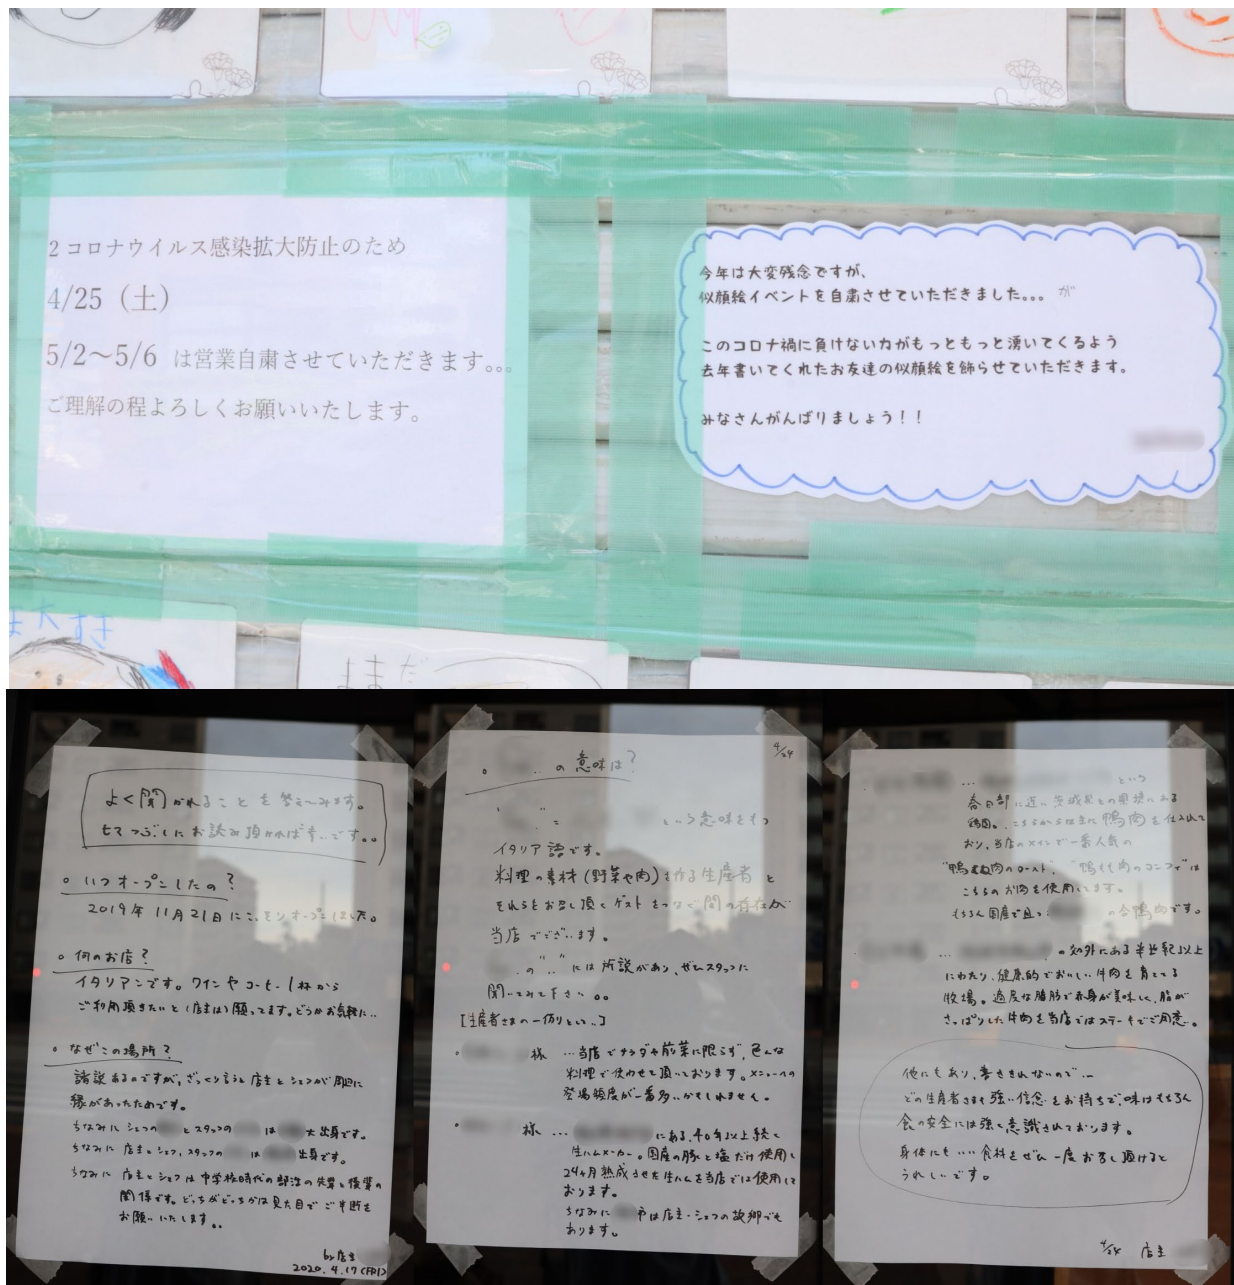 2コロナウイルス感染拡大防止のため
4/25（土）
5/2～5/6 は営業自粛させていただきます。。。
ご理解の程よろしくお願いいたします。
今年は大変残念ですが、
似顔絵イベントを自粛させていただきました。。。 が
このコロナ禍に負けない力がもっともっと湧いてくるよう
去年書いてくれたお友達の似顔絵を飾らせていただきます。
みなさんがんばりましょう！！
大すき
まま だ
よく聞かれることを答えてみます。
ヒマつぶしにお読み頂ければ幸いです。。
。いつオープンしたの？
2019年11月21日にこっそりオープンしました。
。何のお店？
イタリアンです。ワインやコーヒー1杯から
ご利用頂きたいと(店主は)願ってます。どうかお気軽に..
。なぜこの場所？
諸説あるのですが、ざっくり言うと店主とシェフが周辺に
縁があったためです。
ちなみにシェフの とスタッフの は 大出身です。
ちなみに店主とシェフ、スタッフの は 出身です。
ちなみに 店主とシェフは中学校時代の部活の先輩と後輩の
関係です。どっちがどっちかは見た目でご判断を
お願いいたします。。
by 店主
2020.4.17(FRI)
4/24
。 の意味は？
という意味をもつ
イタリア語です。
料理の素材(野菜や肉)を作る生産者と
それらをお召し頂くゲストをつなぐ間の存在が
当店でございます。
の".."には所説があり、ぜひスタッフに
聞いてみて下さい。。
[生産者さまの一例として..]
。 様 …当店でサラダや前菜に限らず、色んな
料理で使わせて頂いております。メニューへの
登場頻度が一番多いかもしれません。
。 様 … にある、40年以上続く
生ハムメーカー。国産の豚と塩だけ使用し
24ヶ月熟成させた生ハムを当店では使用して
おります。
ちなみに 市は店主・シェフの故郷でも
あります。
… という
春日部に近い茨城県との県境にある
農園。こちらからは主に鴨肉を仕入れて
おり、当店のメインで一番人気の
"鴨胸肉のロースト"、"鴨もも肉のコンフィ"は
こちらのお肉を使用してます。
もちろん国産で且つ の合鴨肉です。
… の郊外にある半世紀以上
にわたり、健康的でおいしい牛肉を育てる
牧場。適度な脂肪で赤身が美味しく、脂が
さっぱりした牛肉を当店ではステーキでご用意。
他にもあり、書ききれないので…
どの生産者さまも強い信念をお持ちで、味はもちろん
食の安全には強く意識されております。
身体にもいい食材をぜひ一度お召し頂けると
うれしいです。
4/24 店主